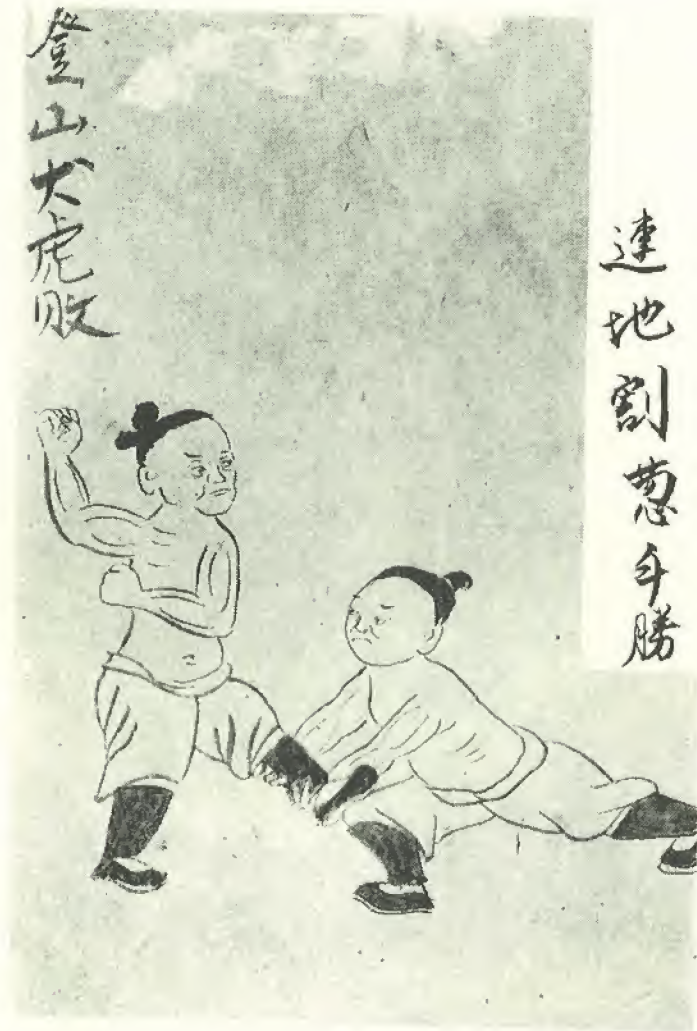 連地割葱手勝
登山犬虎敗